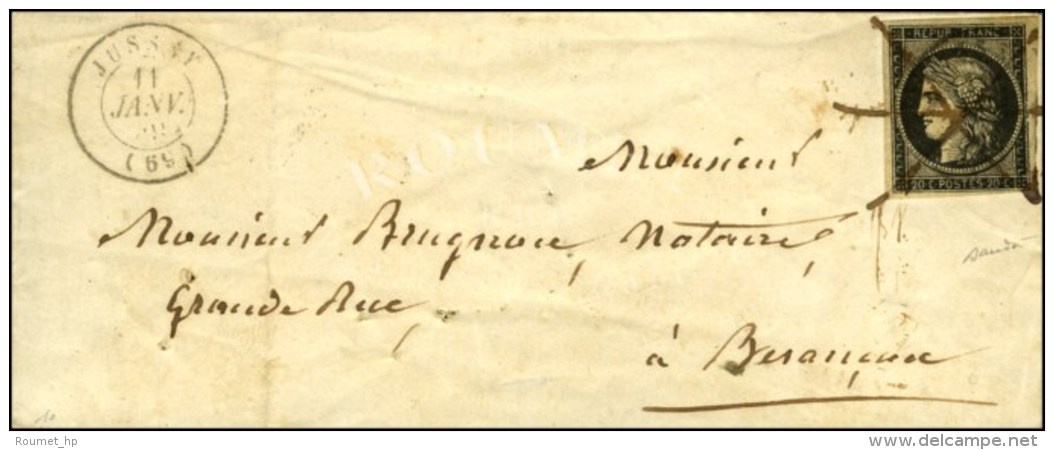 JUSSEY
11
JANV.
(69)
REPUB. FRANC.
20 C POSTES 20 C
Monsieur
Monsieur Brugnon, Notaire,
Grande Rue,
à Besançon
Roumet_hp
www.delcampe.net